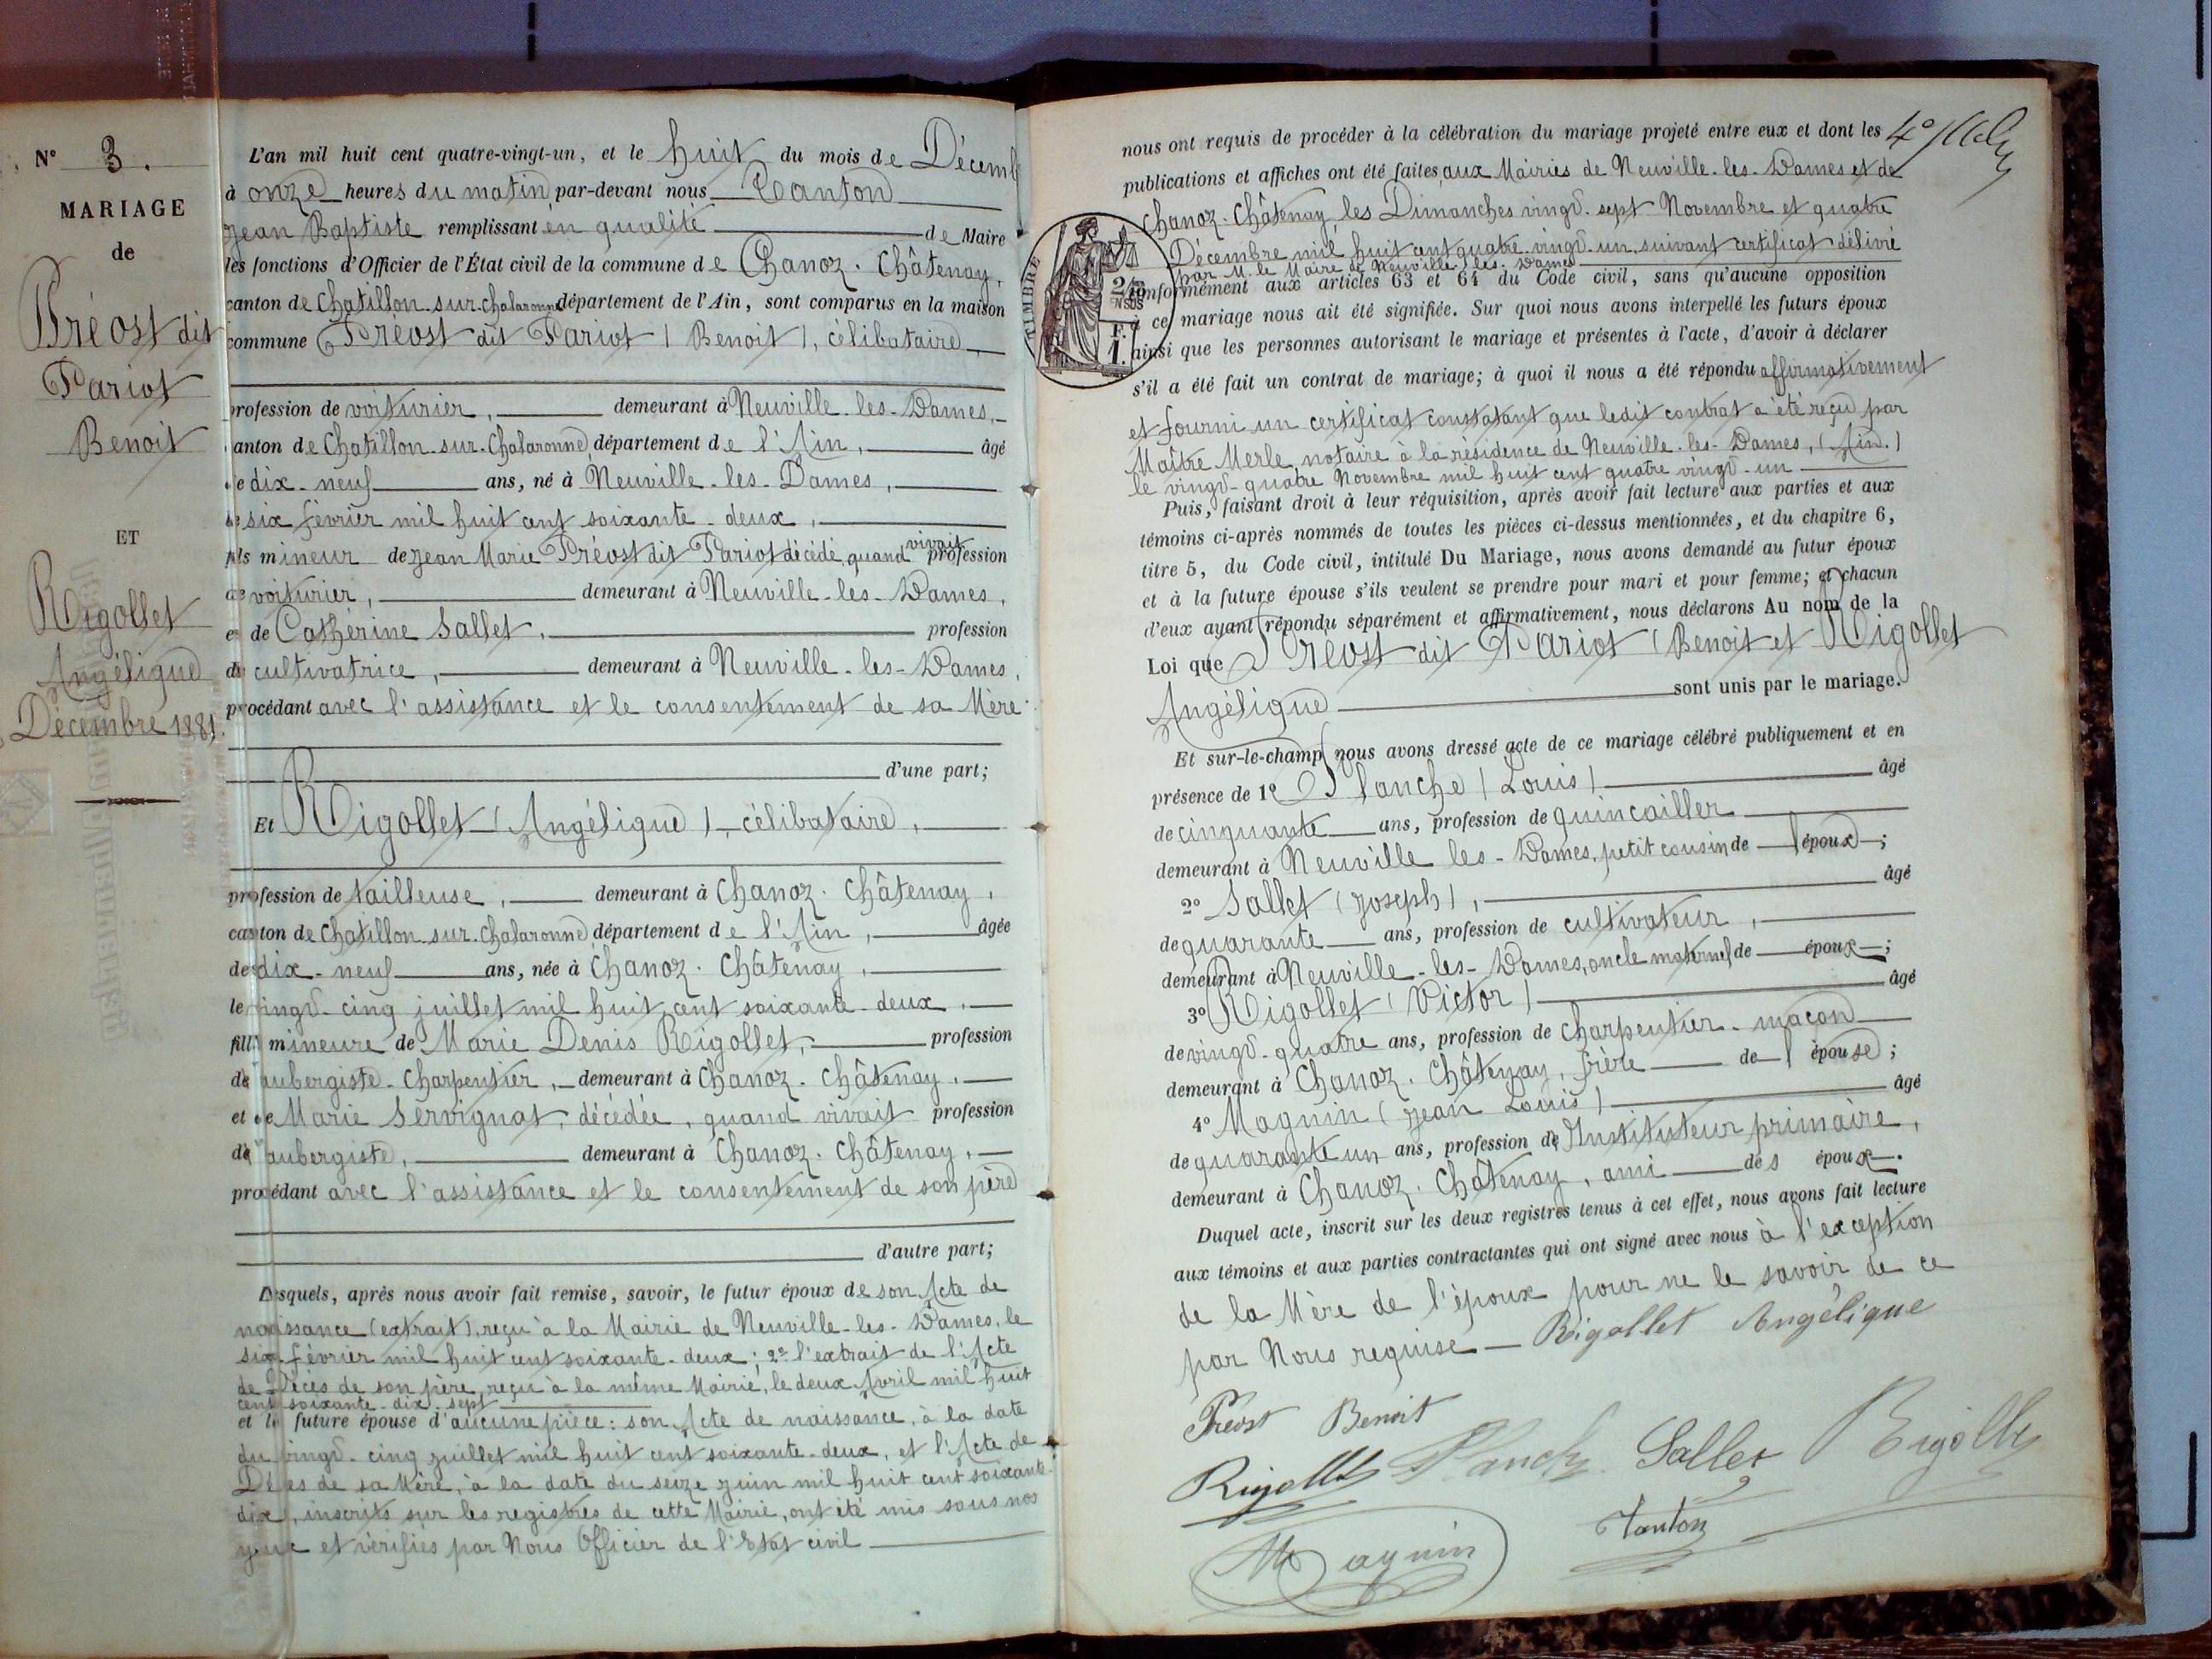 N° 3.
MARIAGE
de
Préost dit
Pariot
Benoit
ET
Rigollet
Angélique
Décembre 1881.
L'an mil huit cent quatre-vingt-un, et le huit du mois de Décemb
à onze heures du matin par-devant nous Tanton
Jean Baptiste remplissant en qualité de Maire
les fonctions d'Officier de l'État civil de la commune de Chanoz-Châtenay,
canton de Chatillon-sur-Chalaronne département de l'Ain, sont comparus en la maison
commune Préost dit Pariot (Benoit), célibataire
profession de voiturier, demeurant à Neuville-les-Dames,
canton de Chatillon-sur-Chalaronne, département de l'Ain, âgé
de dix-neuf ans, né à Neuville-les-Dames,
le six février mil huit cent soixante-deux,
fils mineur de Jean Marie Préost dit Pariot décédé, quand vivait profession
de voiturier, demeurant à Neuville-les-Dames,
et de Cathérine Sallet, profession
de cultivatrice, demeurant à Neuville-les-Dames,
procédant avec l'assistance et le consentement de sa Mère
d'une part;
Et Rigollet (Angélique), célibataire,
profession de tailleuse, demeurant à Chanoz-Châtenay,
canton de Chatillon-sur-Chalaronne département de l'Ain, âgée
de dix-neuf ans, née à Chanoz-Châtenay,
le vingt-cinq juillet mil huit cent soixante-deux,
fille mineure de Marie Denis Rigollet, profession
d'aubergiste-Charpentier, demeurant à Chanoz-Châtenay,
et de Marie Servignat, décédée, quand vivait profession
d'aubergiste, demeurant à Chanoz-Châtenay,
procédant avec l'assistance et le consentement de son père
d'autre part;
Lesquels, après nous avoir fait remise, savoir, le futur époux de son Acte de
naissance (extrait), reçu à la Mairie de Neuville-les-Dames, le
six février mil huit cent soixante-deux; 2° l'extrait de l'Acte
de Décès de son père, reçu à la même Mairie, le deux Avril mil huit
cent soixante-dix-sept
et la future épouse d'aucune pièce: son Acte de naissance, à la date
du vingt-cinq juillet mil huit cent soixante-deux, et l'Acte de
Décès de sa Mère, à la date du seize juin mil huit cent soixante-
dix, inscrits sur les registres de cette Mairie, ont été mis sous nos
yeux et vérifiés par Nous Officier de l'Etat civil
nous ont requis de procéder à la célébration du mariage projeté entre eux et dont les
publications et affiches ont été faites aux Mairies de Neuville-les-Dames et de
Chanoz-Châtenay les Dimanches vingt-sept Novembre et quatre
Décembre mil huit cent quatre-vingt-un, suivant certificat délivré
par M. le Maire de Neuville-les-Dames
TIMBRE
conformément aux articles 63 et 64 du Code civil, sans qu'aucune opposition
à ce mariage nous ait été signifiée. Sur quoi nous avons interpellé les futurs époux
ainsi que les personnes autorisant le mariage et présentes à l'acte, d'avoir à déclarer
s'il a été fait un contrat de mariage; à quoi il nous a été répondu affirmativement
et fourni un certificat constatant que ledit contrat a été reçu par
Maître Merle, notaire à la résidence de Neuville-les-Dames, (Ain.)
le vingt-quatre Novembre mil huit cent quatre vingt-un
Puis, faisant droit à leur réquisition, après avoir fait lecture aux parties et aux
témoins ci-après nommés de toutes les pièces ci-dessus mentionnées, et du chapitre 6,
titre 5, du Code civil, intitulé Du Mariage, nous avons demandé au futur époux
et à la future épouse s'ils veulent se prendre pour mari et pour femme; et chacun
d'eux ayant répondu séparément et affirmativement, nous déclarons Au nom de la
Loi que Préost dit Pariot (Benoit et Rigollet
Angélique sont unis par le mariage.
Et sur-le-champ nous avons dressé acte de ce mariage célébré publiquement et en
présence de 1° Planche (Louis) âgé
de cinquante ans, profession de quincailler
demeurant à Neuville les-Dames, petit cousin de l'époux;
2° Sallet (Joseph), âgé
de quarante ans, profession de cultivateur,
demeurant à Neuville-les-Dames, oncle maternel de époux;
3° Rigollet (Victor) âgé
de vingt-quatre ans, profession de Charpentier-maçon
demeurant à Chanoz-Châtenay, frère de l'épouse;
4° Magnin (Jean Louis) âgé
de quarante un ans, profession d'Instituteur primaire,
demeurant à Chanoz-Châtenay, ami des époux.
Duquel acte, inscrit sur les deux registres tenus à cet effet, nous avons fait lecture
aux témoins et aux parties contractantes qui ont signé avec nous à l'exception
de la Mère de l'époux pour ne le savoir de ce
par Nous requise Rigollet Angélique
Préost Benoit
Rigollet Planche Sallet Rigollet
Magnin Tanton